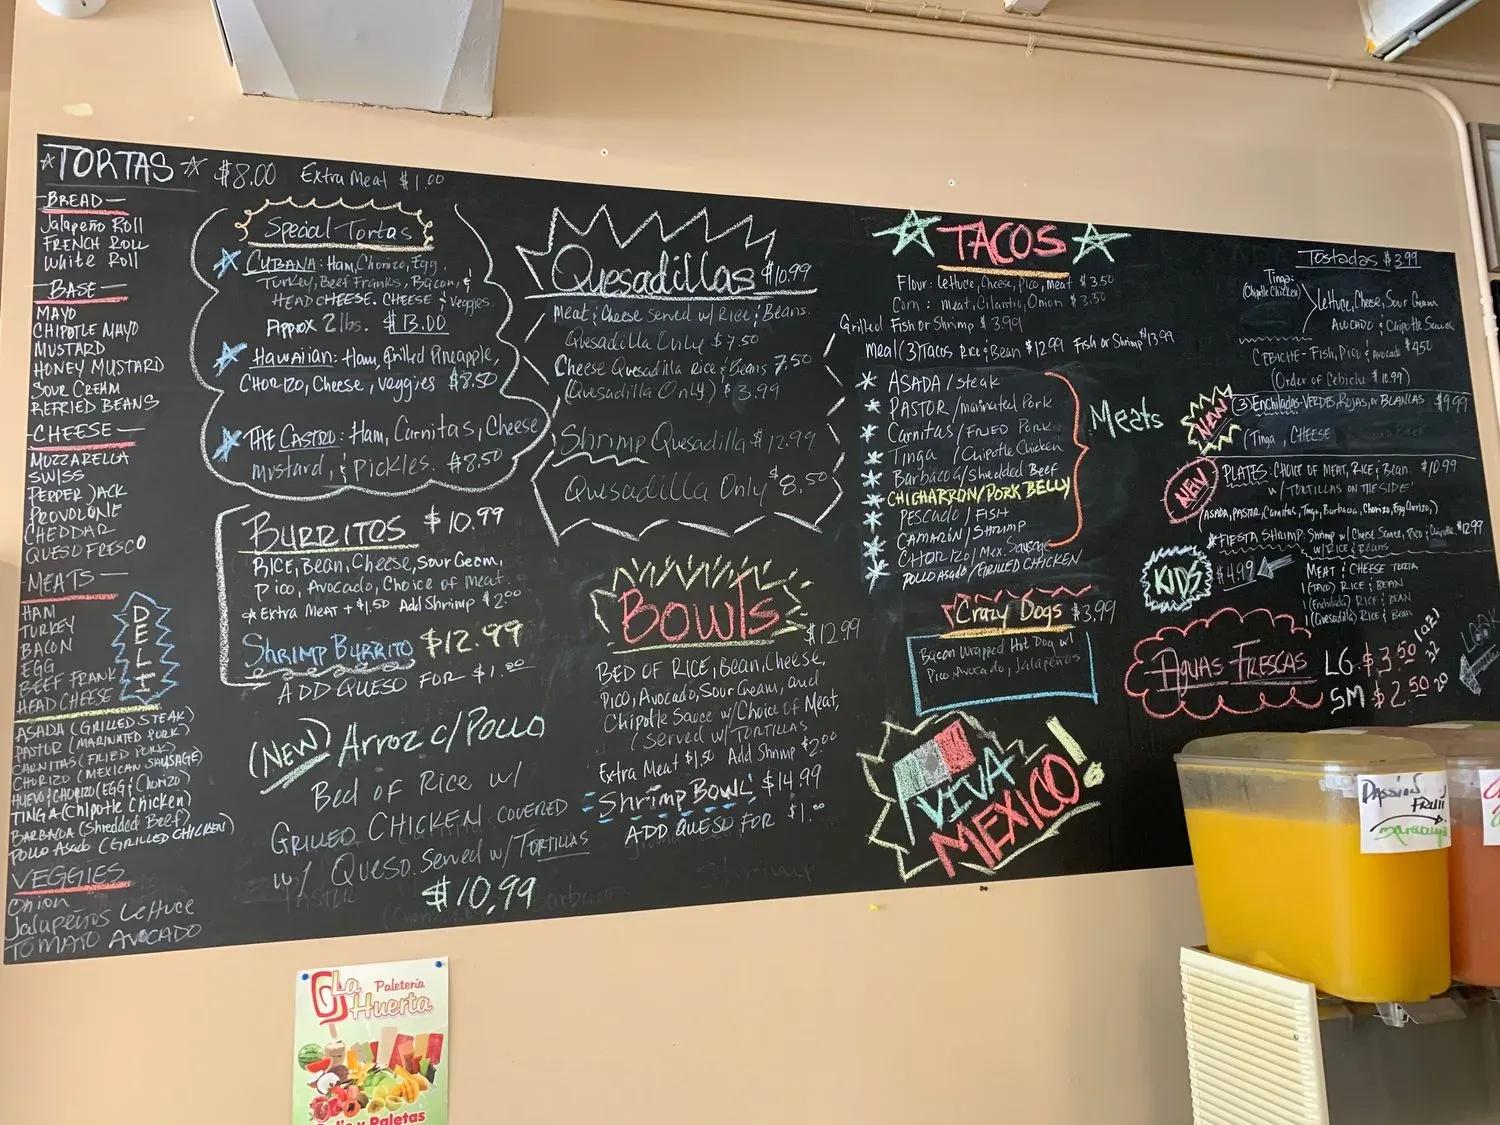 TORTAS $8.00 Extra Meat $1.00
BREAD
Jalapeño Roll
FRENCH ROLL
White Roll
BASE
MAYO
CHIPOTLE MAYO
MUSTARD
HONEY MUSTARD
SOUR CREAM
REFRIED BEANS
CHEESE
MOZZARELLA
SWISS
PEPPER JACK
PROVOLONE
CHEDDAR
QUESO FRESCO
MEATS
HAM
TURKEY
BACON
EGG
BEEF FRANK
HEAD CHEESE
DELI
ASADA (GRILLED STEAK)
PASTOR (MARINATED PORK)
CARNITAS (FRIED PORK)
CHORIZO (MEXICAN SAUSAGE)
HUEVO/CHORIZO (EGG & Chorizo)
TINGA (Chipotle Chicken)
(Shredded Beef)
POLLO ASADO (GRILLED CHICKEN)
VEGGIES
ONION
Jalapeños Lettuce
TOMATO AVOCADO
Special Tortas
CUBANA: Ham, Chorizo, Egg,
Turkey, Beef Franks, Bacon, &
HEAD CHEESE. CHEESE & Veggies.
Approx 2 lbs. $13.00
HAWAIIAN: Ham, Grilled Pineapple,
CHORIZO, Cheese, Veggies $8.50
THE CASTRO: Ham, Carnitas, Cheese
Mustard, & Pickles. $8.50
BURRITOS $10.99
RICE, Bean, Cheese, Sour Cream,
Pico, Avocado, Choice of Meat.
* Extra Meat + $1.50 Add Shrimp $2.00
Shrimp Burrito $12.99
ADD QUESO FOR $1.00
(NEW) Arroz c/Pollo
Bed of Rice w/
GRILLED CHICKEN COVERED
w/ Queso. Served w/ TORTILLAS
$10.99
Quesadillas $10.99
Meat & Cheese Served w/ Rice & Beans.
Quesadilla Only $7.50
Cheese Quesadilla Rice & Beans 7.50
(Quesadilla Only) $3.99
Shrimp Quesadilla $12.99
Quesadilla Only $8.50
BOWLS $12.99
BED OF RICE, Bean, Cheese,
Pico, Avocado, Sour Cream, and
Chipotle Sauce w/ Choice of Meat,
(Served w/ TORTILLAS
Extra Meat $1.50 Add Shrimp $2.00
Shrimp BOWL $14.99
ADD QUESO FOR $1.00
TACOS
Flour: Lettuce, Cheese, Pico, Meat $3.50
Corn: Meat, Cilantro, Onion $3.50
Grilled Fish or Shrimp $3.99
Meal (3) Tacos Rice & Bean $12.99 Fish or Shrimp $13.99
ASADA/Steak
PASTOR/Marinated Pork
Carnitas/FRIED PORK
Tinga/Chipotle Chicken
Barbacoa/Shredded Beef
CHICHARRON/PORK BELLY
PESCADO/FISH
CAMARÓN/SHRIMP
CHORIZO/Mex. Sausage
POLLO ASADO/GRILLED CHICKEN
Meats
Crazy Dogs $3.99
Bacon Wrapped Hot Dog w/
Pico, Avocado, Jalapeños
VIVA
MEXICO!
Tostadas $3.99
Tinga:
(Chipotle Chicken)
Lettuce, Cheese, Sour Cream
Avocado & Chipotle Sauce
CEBICHE - Fish, Pico & Avocado $4.50
(Order of Cebiche $10.99)
NEW
(3) Enchiladas - VERDES, ROJAS, or BLANCAS $9.99
(Tinga, CHEESE
NEW
PLATES: CHOICE OF MEAT, RICE & Bean. $10.99
w/ TORTILLAS ON THE SIDE
(ASADA, PASTOR, Carnitas, Tinga, Barbacoa, Chorizo, Egg Chorizo,)
* FIESTA SHRIMP: Shrimp w/ Cheese Sauce, Pico & Chipotle $12.99
w/ RICE & Beans
KIDS $4.99
MEAT & CHEESE TORTA
1 (TACO) RICE & BEAN
1 (Enchilada) RICE & BEAN
1 (Quesadilla) RICE & Bean
AGUAS FRESCAS LG. $3.50 32
SM $2.50 20
(oz)
LOOK
PASSION
FRUIT
maracuya
La
Paletería
Huerta